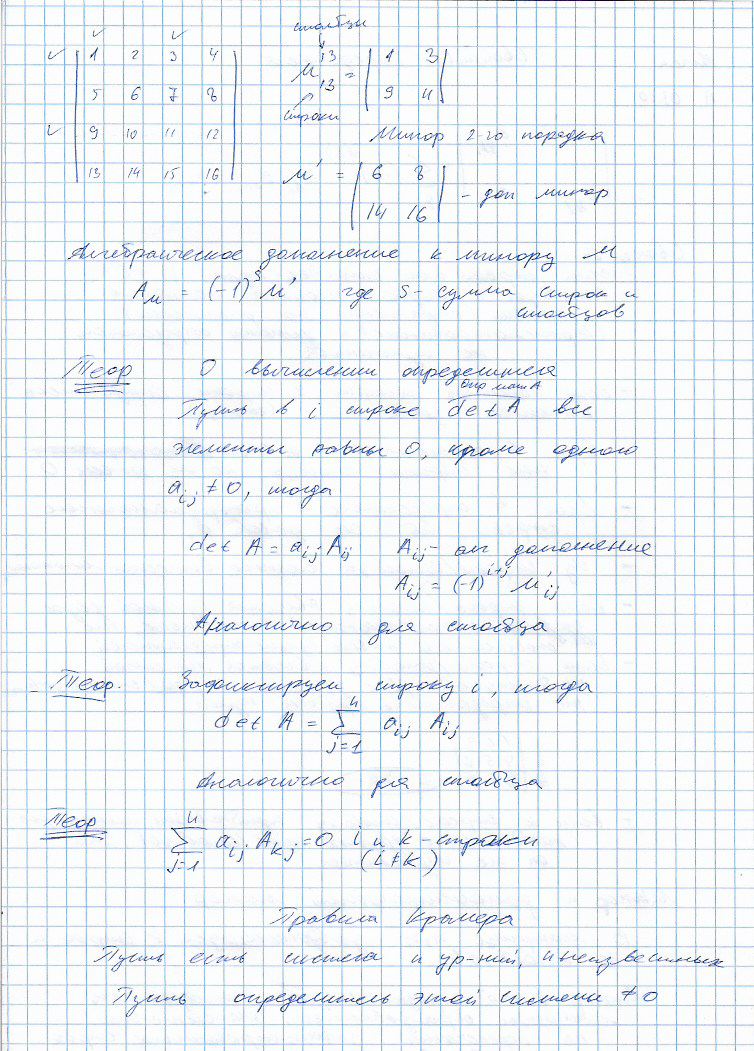 столбцы
✓ ✓
✓ | 1 2 3 4 |
| 5 6 7 8 |
✓ | 9 10 11 12 |
| 13 14 15 16 |
M¹³₁₃ = | 1 3 |
| 9 11 |
строки
Минор 2-го порядка
M' = | 6 8 |
| 14 16 | - доп минор
Алгебраическое дополнение к минору M
A_M = (-1)^S M' где S - сумма строк и
столбцов
Теор О вычислении определителя
опр мат A
Пусть в i строке det A все
элементы равны 0, кроме одного
a_ij ≠ 0, тогда
det A = a_ij A_ij A_ij - ал дополнение
A_ij = (-1)^{i+j} M'_ij
Аналогично для столбца
Теор. Зафиксируем строку i, тогда
det A = ∑_{j=1}^{n} a_ij A_ij
Аналогично для столбца
Теор ∑_{j=1}^{n} a_ij A_kj = 0 i и k - строки
(i ≠ k)
Правила Крамера
Пусть есть система n ур-ний, n неизвестных
Пусть определитель этой системы ≠ 0